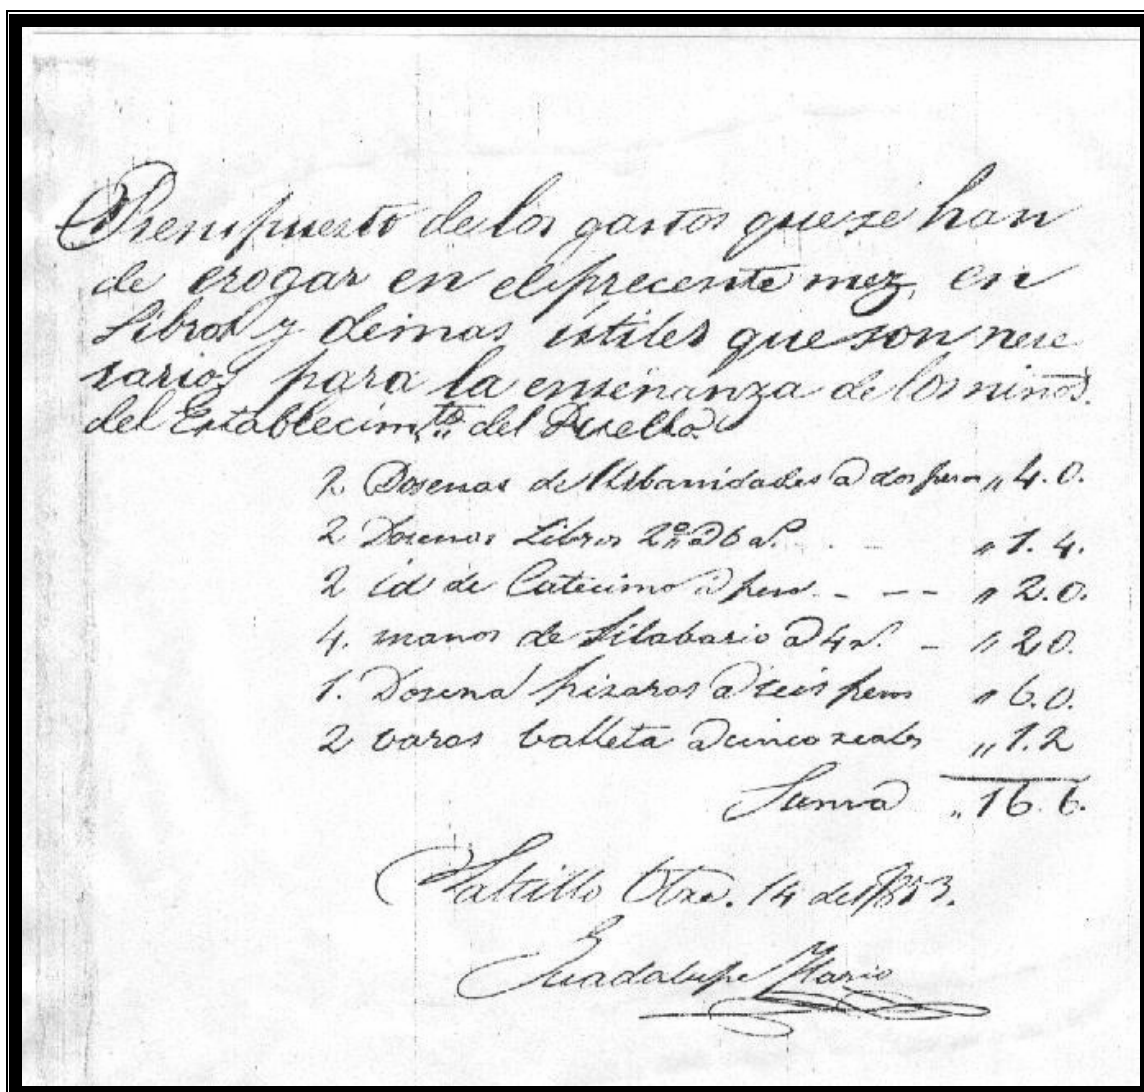 Presupuesto de los gastos que se han
de erogar en el precente mez, en
Libros y demas utiles que son nece
sarios para la enseñanza de los niños.
del Establecimto. del
2 Dosenas de Urbanidades a dos pesos „ 4.0.
2 Dosenas Libros 2º a 6 rs. „ 1.4.
2 id de Catecimo a peso. - - - „ 2.0.
4. manos de Silabario a 4 rs. - „ 2.0.
1. Dosena pizaras a seis pesos „ 6.0.
2 varas balleta a cinco reales „ 1.2
Suma „ 16.6.
Saltillo 14 de 1853.
Guadalupe